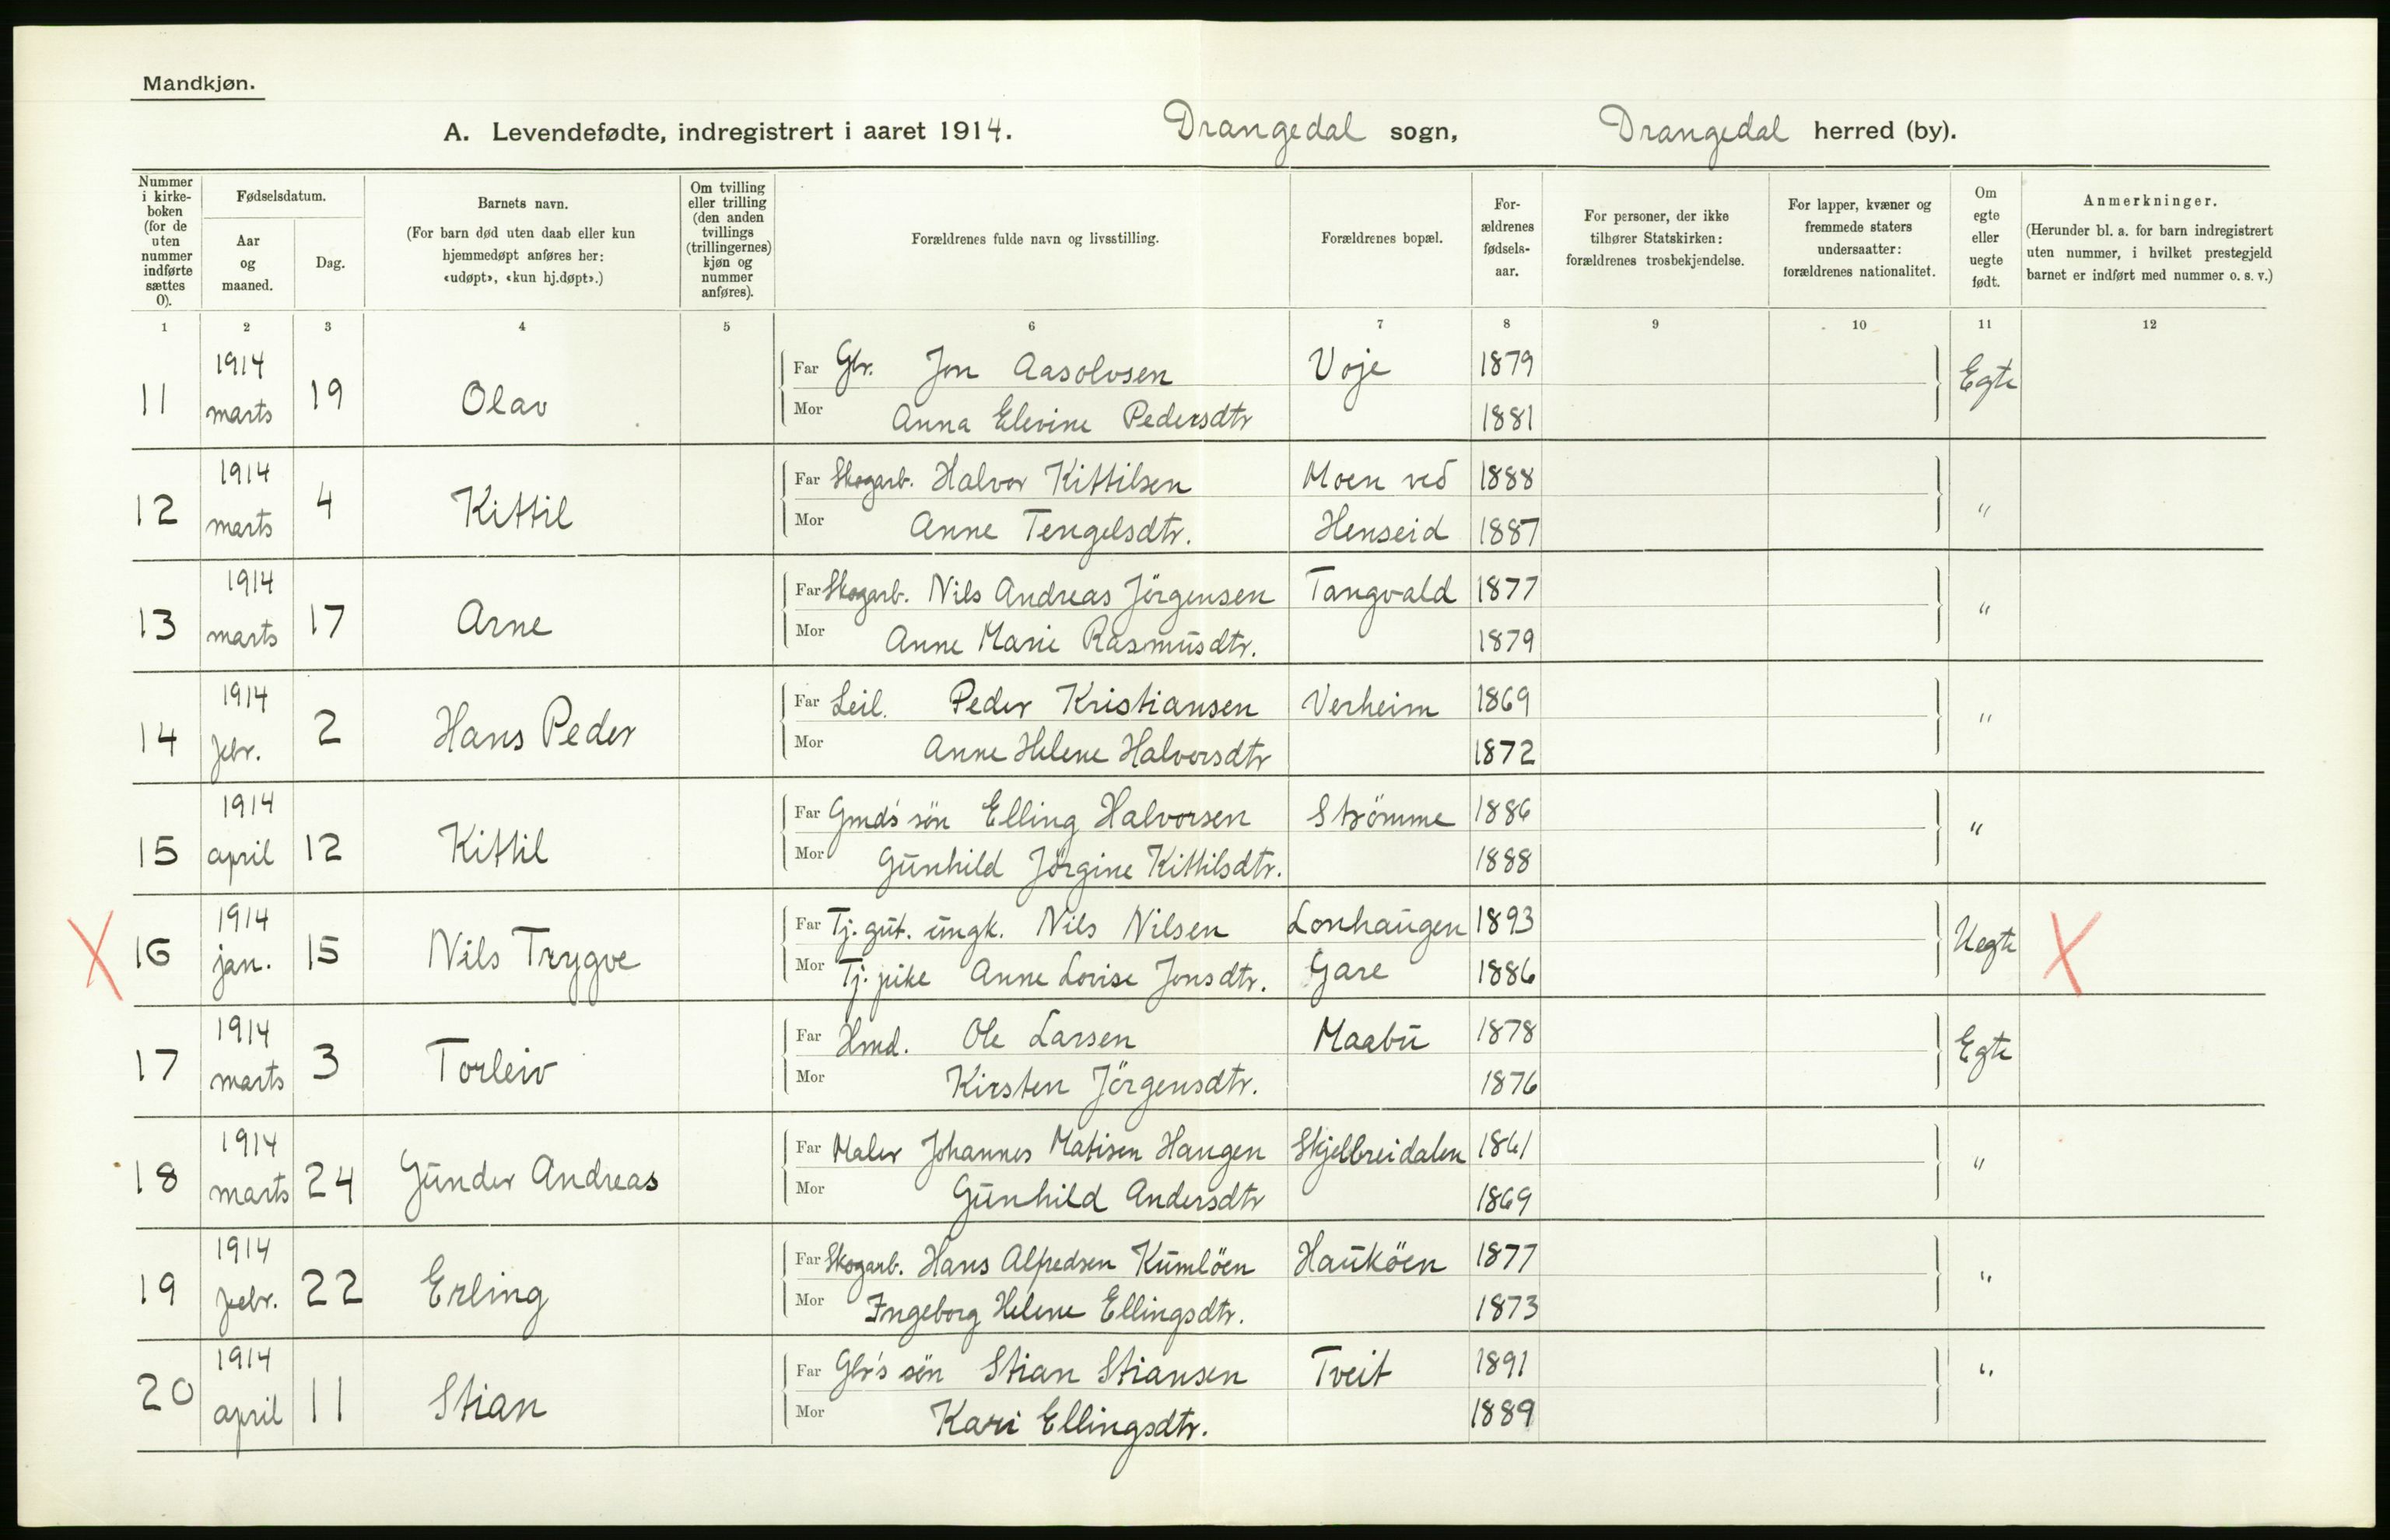 Mandkjøn.
A. Levendefødte, indregistrert i aaret 1914. Drangedal sogn, Drangedal herred (by).
Nummer i kirkeboken (for de uten nummer indførte sættes 0).
Fødselsdatum.
Aar og maaned.
Dag.
Barnets navn.
(For barn død uten daab eller kun hjemmedøpt anføres her: «udøpt», «kun hj.døpt».)
Om tvilling eller trilling (den anden tvillings (trillingernes) kjøn og nummer anføres).
Forældrenes fulde navn og livsstilling.
Forældrenes bopæl.
Forældrenes fødselsaar.
For personer, der ikke tilhører Statskirken: forældrenes trosbekjendelse.
For lapper, kvæner og fremmede staters undersaatter: forældrenes nationalitet.
Om egte eller uegte født.
Anmerkninger.
(Herunder bl. a. for barn indregistrert uten nummer, i hvilket prestegjeld barnet er indført med nummer o. s. v.)
1 2 3 4 5 6 7 8 9 10 11 12
11 1914 marts 19 Olav Far Gbr. Jon Aasolvsen Voje 1879 Egte
Mor Anna Elevine Pedersdtr 1881
12 1914 marts 4 Kittil Far Skogarb. Halvor Kittilsen Moen ved 1888 "
Mor Anne Tengelsdtr. Henseid 1887
13 1914 marts 17 Arne Far Skogarb. Nils Andreas Jörgensen Tangvald 1877 "
Mor Anne Marie Rasmusdtr. 1879
14 1914 febr. 2 Hans Peder Far Leil. Peder Kristiansen Verheim 1869 "
Mor Anne Helene Halvorsdtr 1872
15 1914 april 12 Kittil Far Gmd's sön Elling Halvorsen Strömme 1886 "
Mor Gunhild Jörgine Kittilsdtr. 1888
X 16 1914 jan. 15 Nils Trygve Far Tj. gut. ungk. Nils Nilsen Lonhaugen 1893 Uegte X
Mor Tj. pike Anne Lovise Jonsdtr. Gare 1886
17 1914 marts 3 Torleiv Far Hmd. Ole Larsen Maabu 1878 Egte
Mor Kirsten Jörgensdtr. 1876
18 1914 marts 24 Gunder Andreas Far Maler Johannes Matisen Haugen Skjelbreidalen 1861 "
Mor Gunhild Andersdtr 1869
19 1914 febr. 22 Erling Far Skogarb. Hans Alfredsen Kumlöen Hauköen 1877 "
Mor Ingeborg Helene Ellingsdtr. 1873
20 1914 april 11 Stian Far Gbr's sön Stian Stiansen Tveit 1891 "
Mor Kari Ellingsdtr. 1889